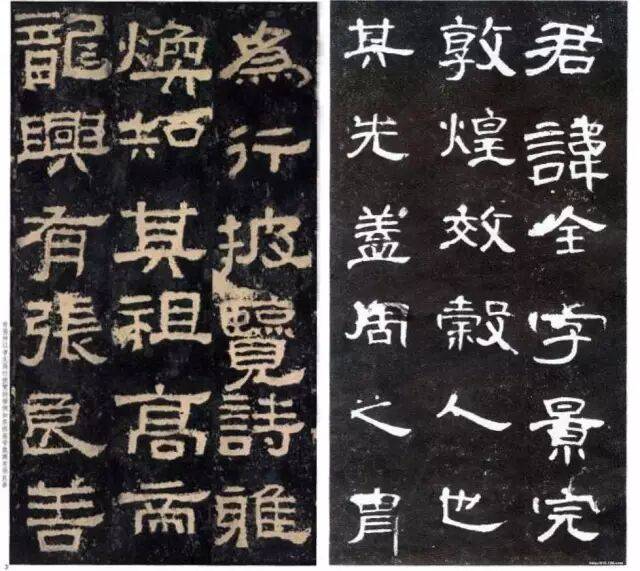 君諱全字景完
敦煌效穀人也
其先蓋周之胄
為行披覽詩雅
煥知其祖高而
龍興有張良善
3